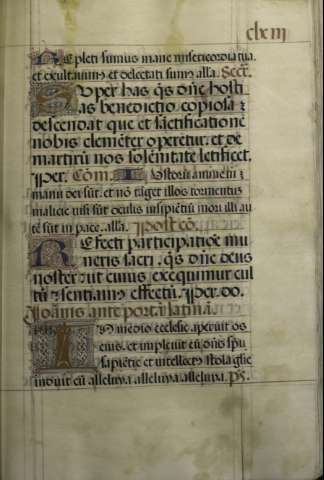 clxiii
Repleti sumus mane misericordia tua.
et exultavimꝰ et delectati sumꝰ alla. Secr̄.
Super has q̄s dn̄e hosti
as benedictio copiosa ⁊
descendat que et sāctificationē
nobis clemēter operetur. et de
martirū nos solēnitate letificet.
Per. Com̄. Iustorū anime in
manu dei sūt. et nō tāget illos tormentū
malicie visi sūt oculis insipiētiū mori illi au
tē sūt in pace. alla. Postcō.
Refecti participatiōe mu
neris sacri. q̄s dn̄e deus
noster ut cuius exequimur cul
tū ⁊ sentiamꝰ effectū. Per. do.
Ioānis ante portā latinā.
In medio ecclesie aperuit os
eius. et implevit eū dn̄s spū
sapiētie et intellectꝰ stola glīe
induit eū alleluya alleluya alleluya. pś.